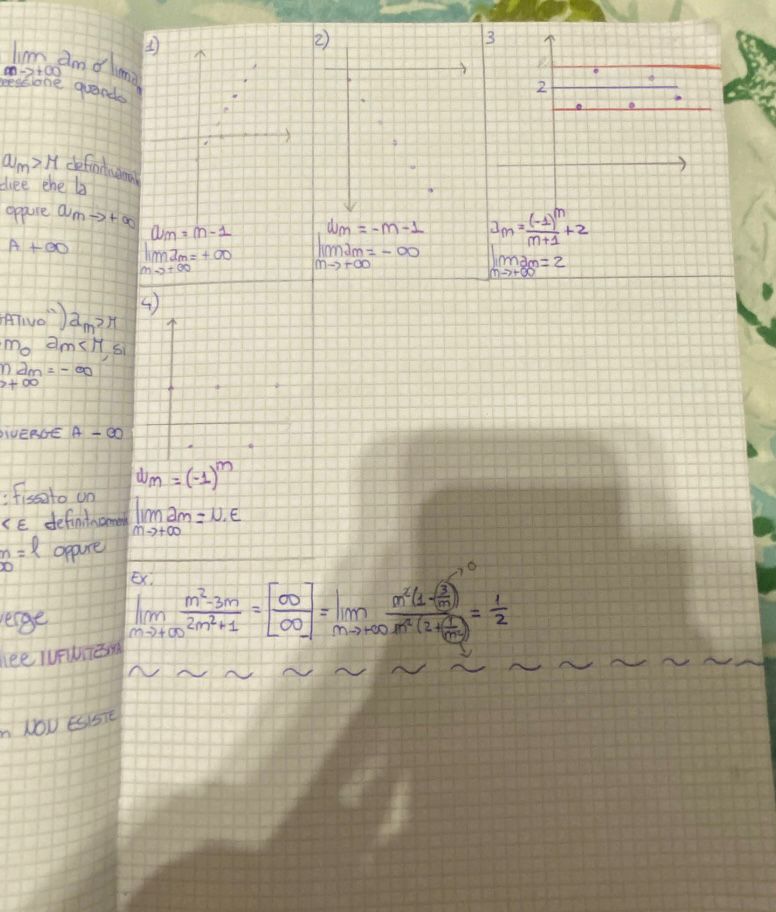 lim am o lim a
m→+∞
essione quando
am > M definitivamente
dice che la
oppure am → +∞
A +∞
ATIVO") am > M
mo am < M, si
am = -∞
→+∞
DIVERGE A -∞
: fissato un
< ε definitivament
= l oppure
verge
INFINITESIMA
NON ESISTE
1)
am = m-1
lim am = +∞
m→+∞
2)
am = -m-1
lim am = -∞
m→+∞
3
2
am = (-1)^m/(m+1) + 2
lim am = 2
m→+∞
4)
am = (-1)^m
lim am = N.E
m→+∞
Ex:
lim m²-3m / 2m²+1 = [∞/∞] = lim m²(1-3/m) / m²(2+1/m²) = 1/2
m→+∞ m→+∞
0